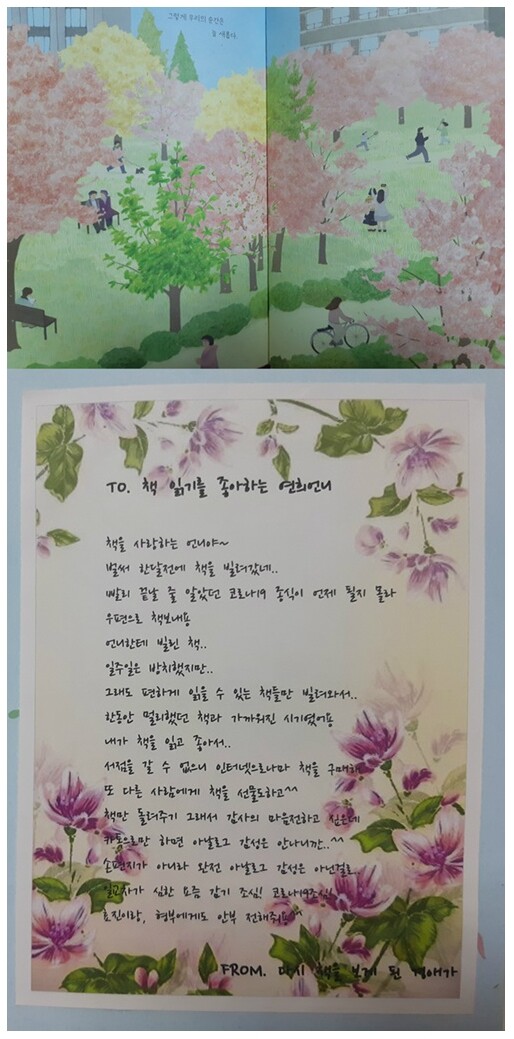 그렇게 우리의 순간은
늘 새롭다.
TO. 책 읽기를 좋아하는 연희언니
책을 사랑하는 언니야~
벌써 한달전에 책을 빌려갔네..
빨리 끝날 줄 알았던 코로나19 종식이 언제 될지 몰라
우편으로 책보내용
언니한테 빌린 책..
일주일은 방치했지만..
그래도 편하게 읽을 수 있는 책들만 빌려와서..
한동안 멀리했던 책과 가까워진 시기였어용
내가 책을 읽고 좋아서..
서점을 갈 수 없으니 인터넷으로나마 책을 구매해
또 다른 사람에게 책을 선물도하고^^
책만 돌려주기 그래서 감사의 마음전하고 싶은데
카톡으로만 하면 아날로그 감성은 안나니깐..^^
손편지가 아니라 완전 아날로그 감성은 아닌걸로..
일교차가 심한 요즘 감기 조심! 코로나19조심!
효진이랑, 형부에게도 안부 전해주세요^^
FROM. 다시 책을 보게 된 경애가